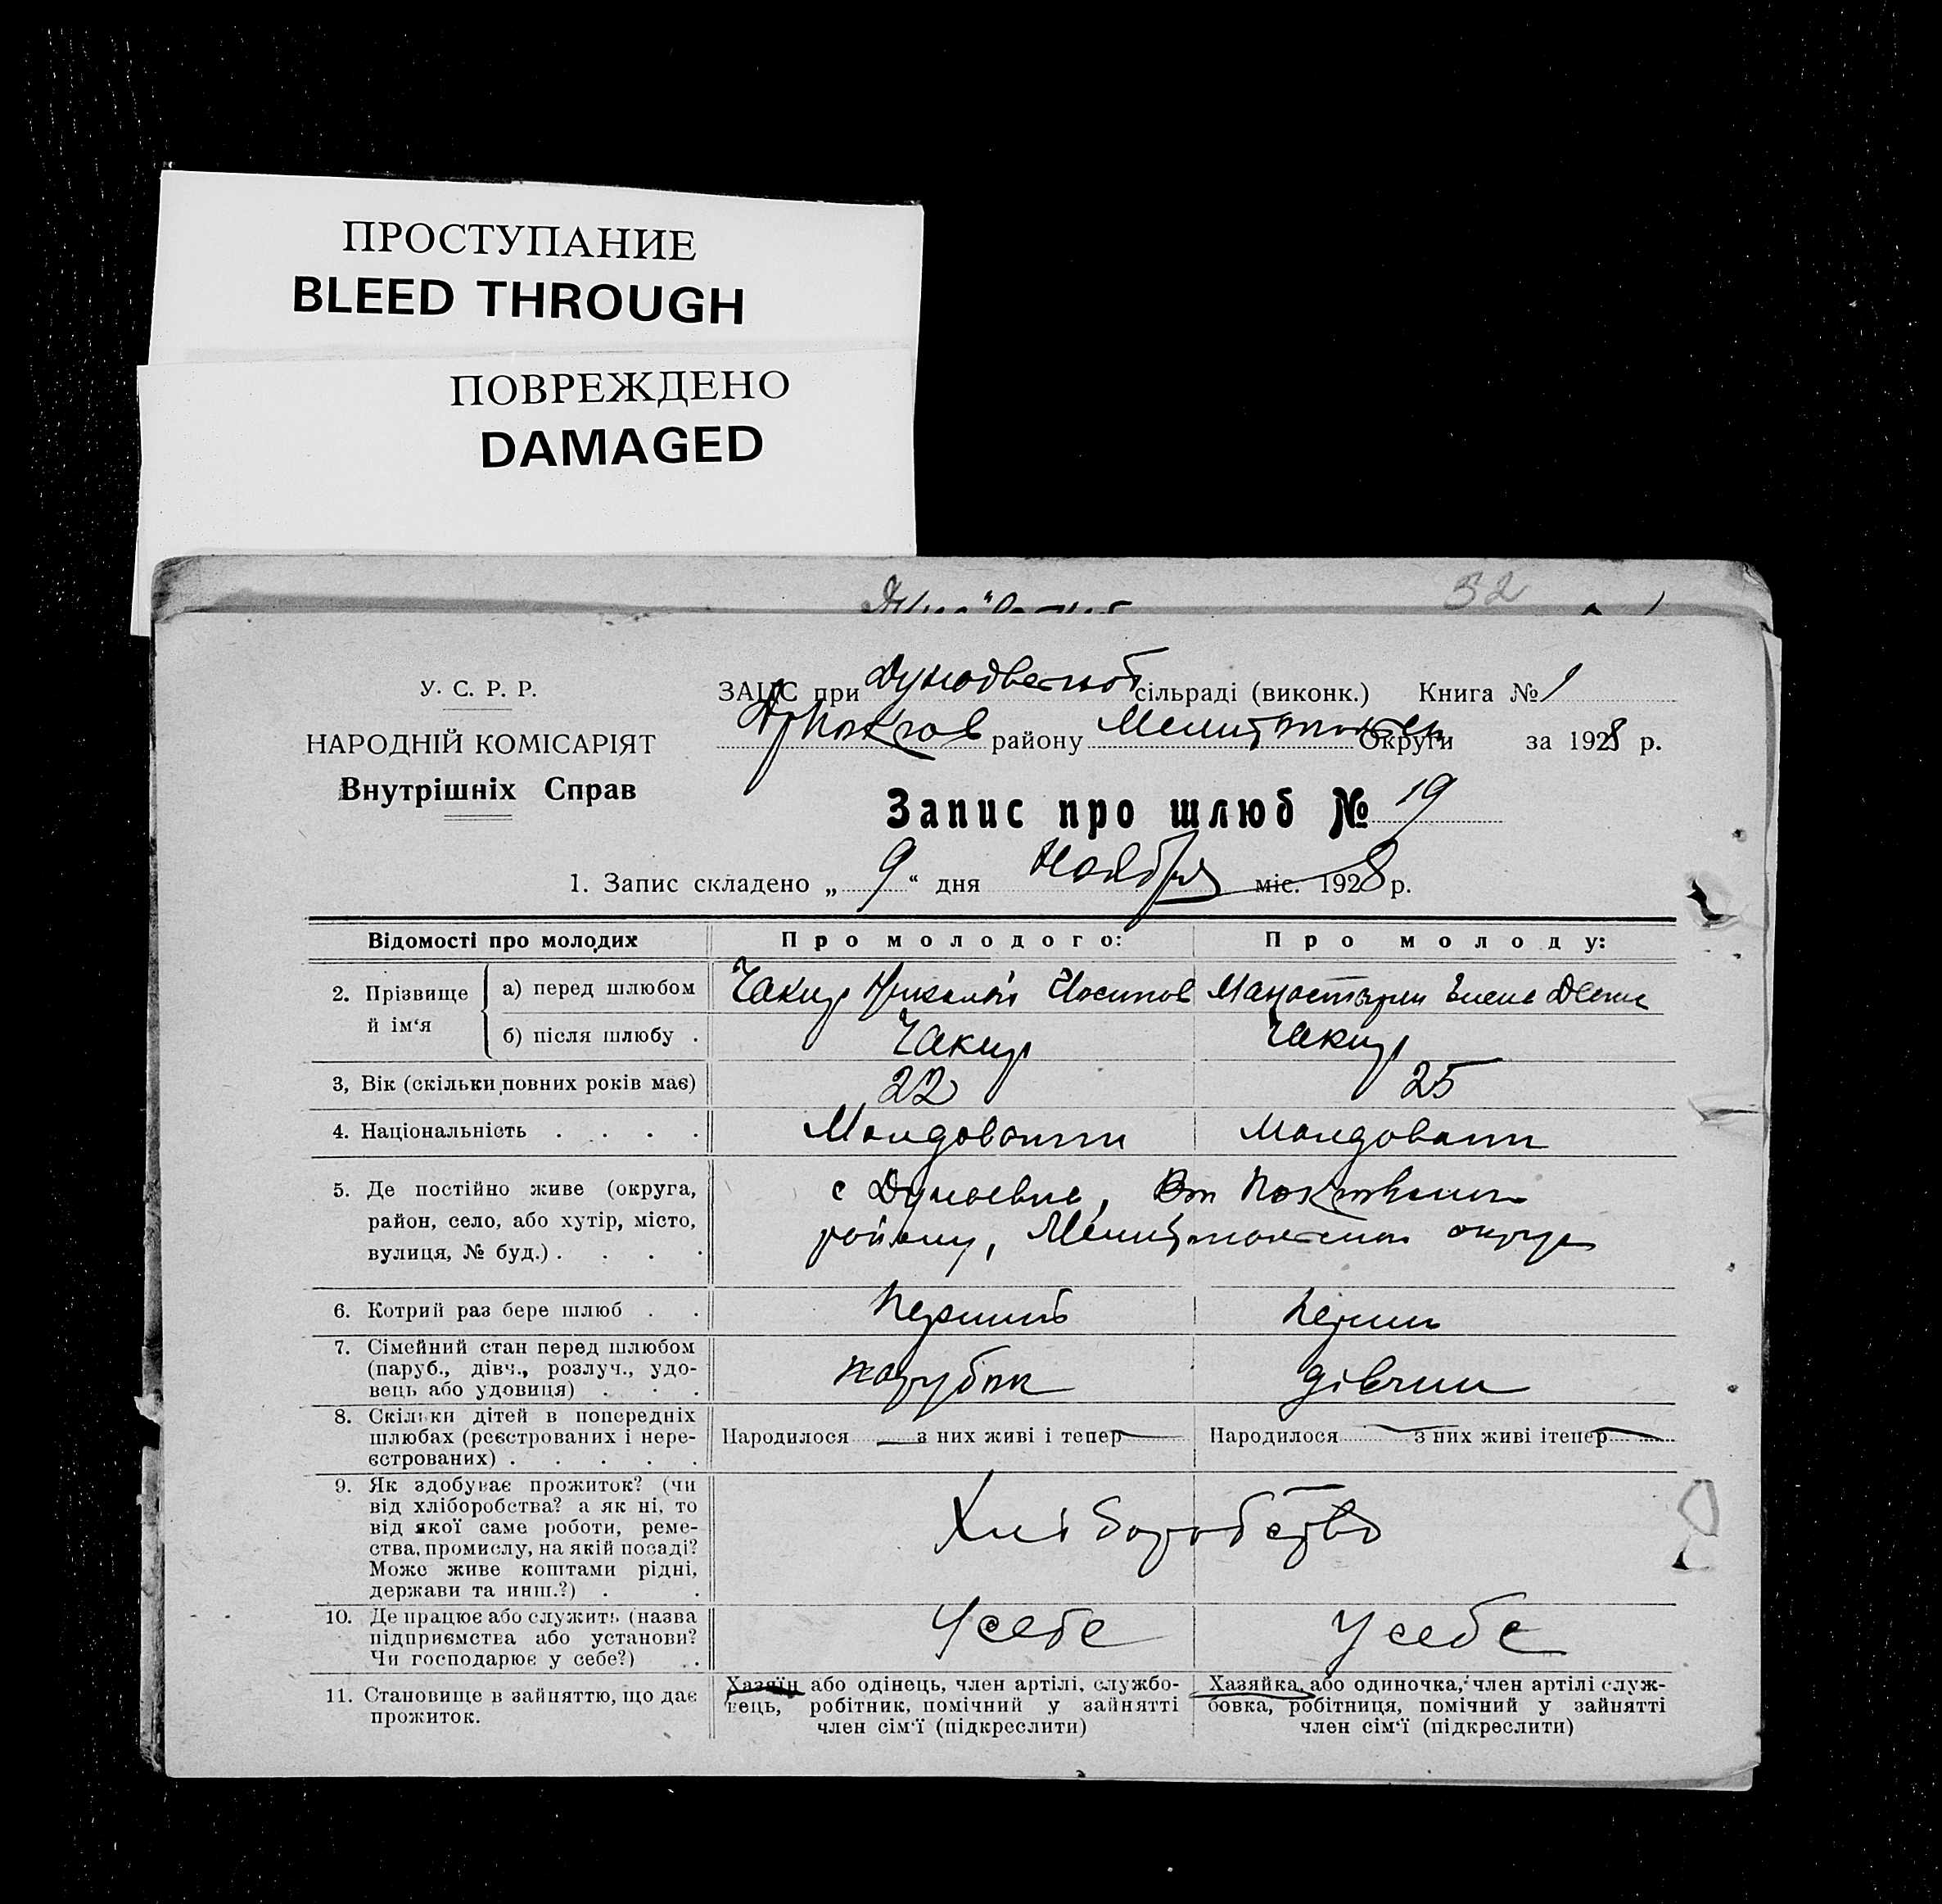 ПРОСТУПАНИЕ
BLEED THROUGH
ПОВРЕЖДЕНО
DAMAGED
32
У. С. Р. Р.
НАРОДНІЙ КОМІСАРІЯТ
Внутрішніх Справ
ЗАЦС при сільраді (виконк.) Книга № 1
району Округи за 1928 р.
Запис про шлюб № 19
1. Запис складено „ 9 “ дня Ноября міс. 1928 р.
Відомості про молодих
Про молодого:
Про молоду:
2. Прізвище й ім‘я
а) перед шлюбом
Чакир Николай Иосипов
Елена
б) після шлюбу .
Чакир
Чакир
3, Вік (скільки повних років має)
22
25
4. Національність . . . .
Молдовани
Молдовани
5. Де постійно живе (округа,
район, село, або хутір, місто,
вулиця, № буд.) . . . .
с
району, округи
6. Котрий раз бере шлюб . .
Перший
Перший
7. Сімейний стан перед шлюбом
(паруб., дівч., розлуч., удо-
вець або удовиця) . . .
парубок
дівчина
8. Скільки дітей в попередніх
шлюбах (реєстрованих і нере-
єстрованих) . . . . .
Народилося — з них живі і тепер —
Народилося — з них живі ітепер —
9. Як здобуває прожиток? (чи
від хліборобства? а як ні, то
від якої саме роботи, реме-
ства, промислу, на якій посаді?
Може живе коштами рідні,
держави та инш.?) . .
Хліборобство
10. Де працює або служить (назва
підприємства або установи?
Чи господарює у себе?) .
У себе
У себе
11. Становище в зайняттю, що дає
прожиток.
Хазяїн або одінець, член артілі, службо-
вець, робітник, помічний у зайнятті
член сім‘ї (підкреслити)
Хазяйка, або одиночка, член артілі служ-
бовка, робітниця, помічний у зайнятті
член сім‘ї (підкреслити)